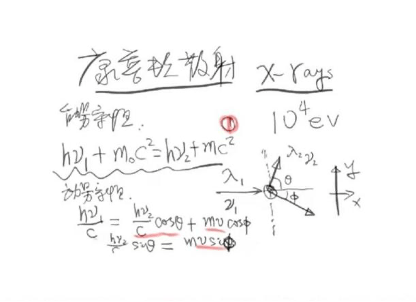 康普顿散射 x-rays
能量守恒. ① 10⁴ev
hν₁ + m₀c² = hν₂ + mc²
动量守恒.
hν₁/c = hν₂/c cosθ + mv cosϕ
hν₂/c sinθ = mv sinϕ
λ₁
ν₁
λ₂ν₂
θ
ϕ
y
x